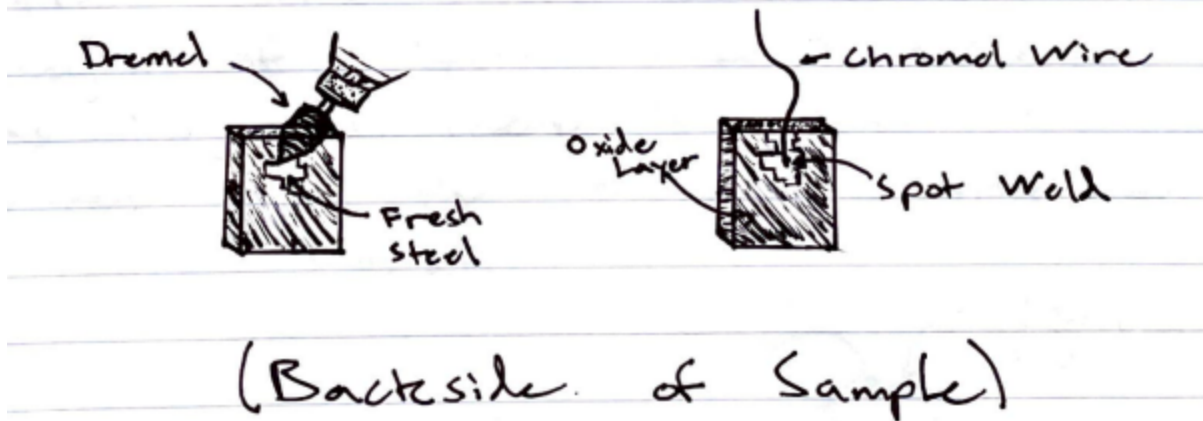 Dremel
Fresh
Steel
Chromel Wire
Oxide
Layer
Spot Weld
(Backside of Sample)